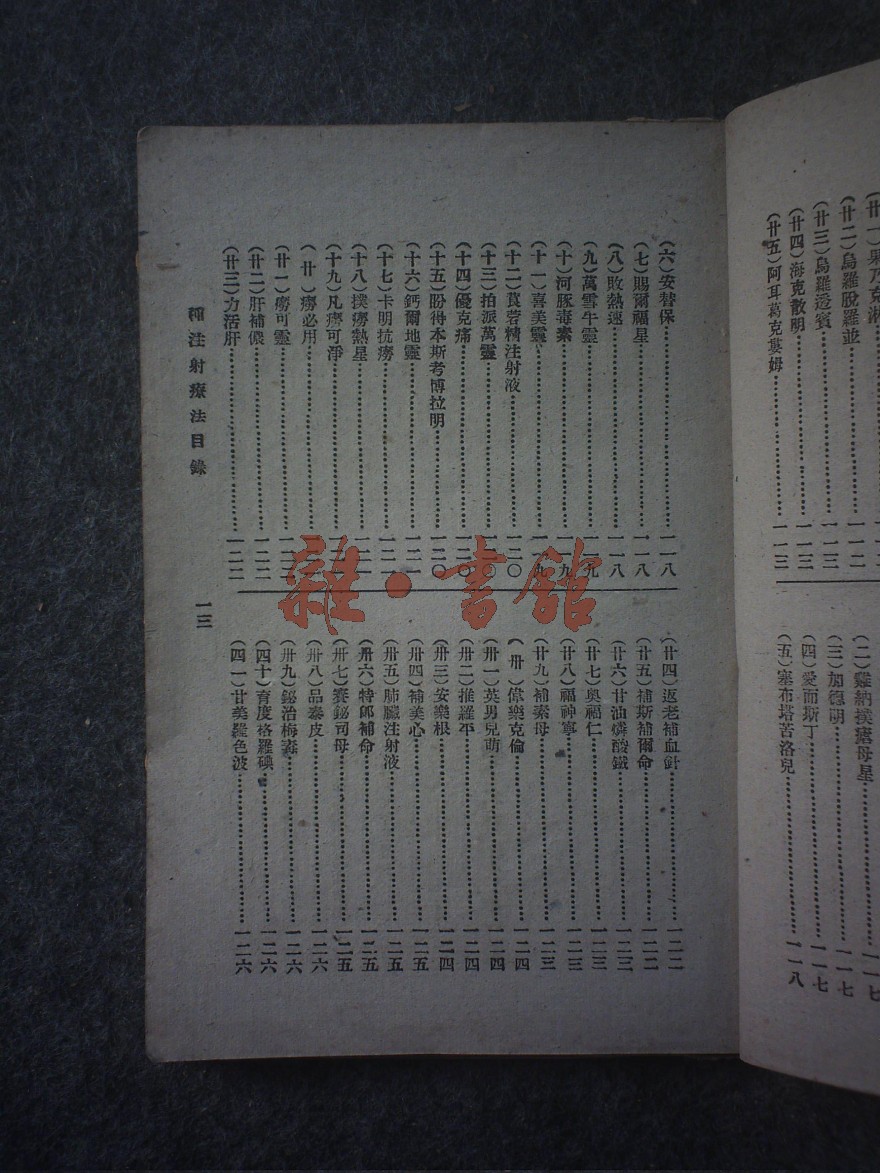 (廿一)果乃克淋
(廿二)烏羅脫羅並……一一二
(廿三)烏羅透賓……一一三
(廿四)海克散明……一一三
(廿五)阿耳葛克婁姆……一一三
(四)愛而斯丁……一一七
(三)加德明……一一七
(五)塞布塔苦洛兒……一一八
(六)安替保……一一八
(七)賜爾福星……一一八
(八)敗熱速……一一八
(九)萬雪牛靈……一一九
(十)河豚毒素……一一九
(十一)喜美靈……一一九
(十二)莨菪精注射液……一二〇
(十三)拍派萬靈……一二〇
(十四)優克痛……一二〇
(十五)盼得本斯考博拉明……一二〇
(十六)鈣爾地靈……一二一
(十七)卡明抗癆
(十八)撲癆熱星
(十九)凡癆可淨
(廿)癆必用
(廿一)癆可靈
(廿二)肝補儂……一二二
(廿三)力活肝……一二二
(廿四)返老補血針……一二二
(廿五)補斯補爾命……一二二
(廿六)甘油燐酸鐵……一二三
(廿七)奥福仁……一二三
(廿八)福神寧……一二三
(廿九)補素母……一二三
(卅)偉樂克倫……一二四
(卅一)英男兒萌……一二四
(卅二)推羅平……一二四
(卅三)安樂根……一二四
(卅四)補美心……一二五
(卅五)肺臟注射液……一二五
(卅六)特郎補命……一二五
(卅七)賽鉍司母……一二五
(卅八)品泰皮……一二六
(卅九)鉍治梅毒……一二六
(四十)育度格羅碘……一二六
(四一)甘美羅色波……一二六
種注射療法目錄
一三
雜·書館